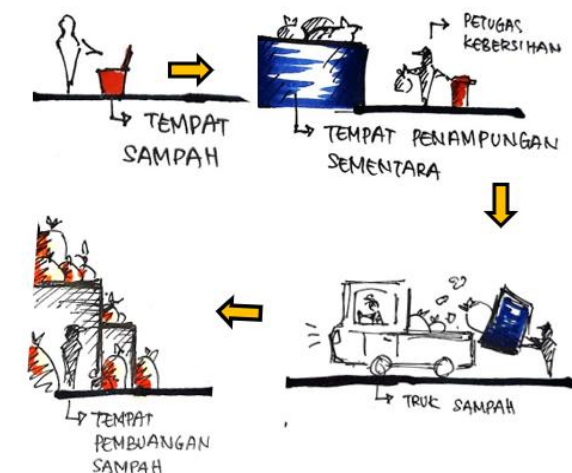 TEMPAT
SAMPAH
PETUGAS
KEBERSIHAN
TEMPAT PENAMPUNGAN
SEMENTARA
TRUK SAMPAH
TEMPAT
PEMBUANGAN
SAMPAH